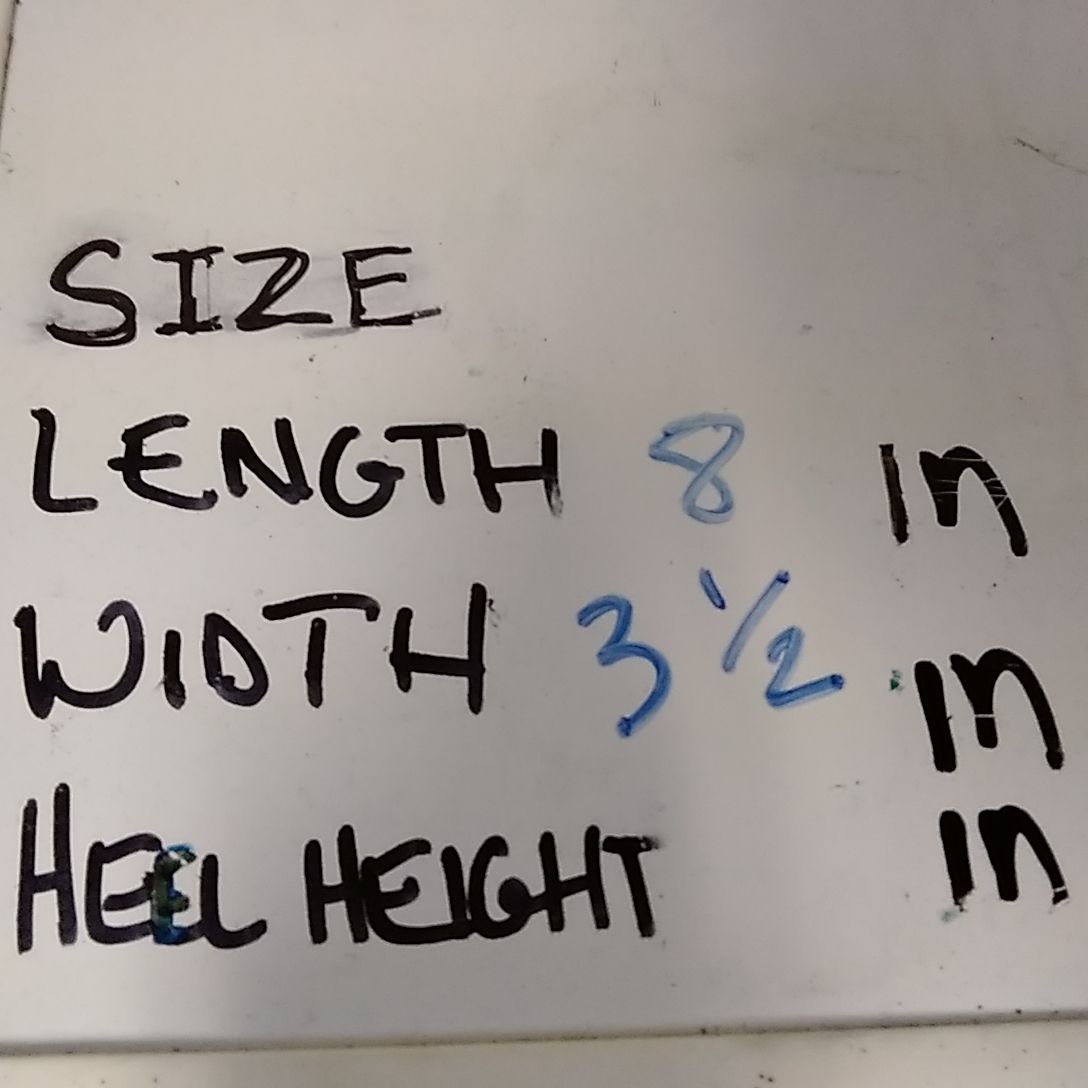 SIZE
LENGTH 8 in
WIDTH 3 1/2 in
HEEL HEIGHT in